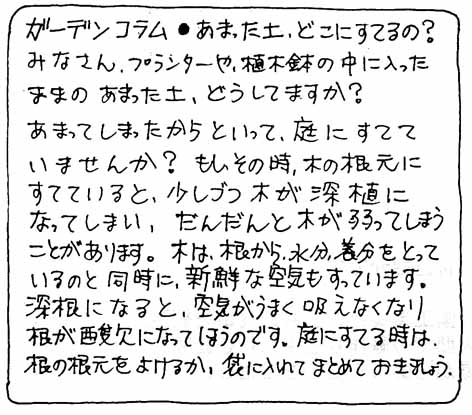 ガーデンコラム ● あまった土、どこにすてるの?
みなさん、プランターや、植木鉢の中に入った
ままの あまった土、どうしてますか?
あまってしまったからといって、庭にすてて
いませんか? もし、その時、木の根元に
すてていると、少しづつ 木が 深植に
なってしまい、だんだんと 木が弱ってしまう
ことがあります。木は、根から、水分、養分をとって
いるのと 同時に、新鮮な空気もすっています。
深根になると、空気がうまく 吸えなくなり
根が酸欠になってしまうのです。庭にすてる時は、
根の根元をよけるか、袋に入れて まとめて おきましょう。